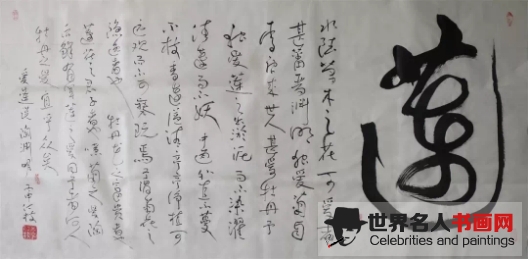 蓮
水陸草木之花可愛者
甚蕃晉陶淵明獨愛菊自
李唐來世人甚愛牡丹予
獨愛蓮之出淤泥而不染濯
清漣而不妖中通外直不蔓
不枝香遠益清亭亭淨植可
遠觀而不可褻玩焉予謂菊花之
隱逸者也牡丹花之富貴者也
蓮花之君子者也噫菊之愛陶
後鮮有聞蓮之愛同予者何人
牡丹之愛宜乎眾矣
世界名人书画网
Celebrities and paintings